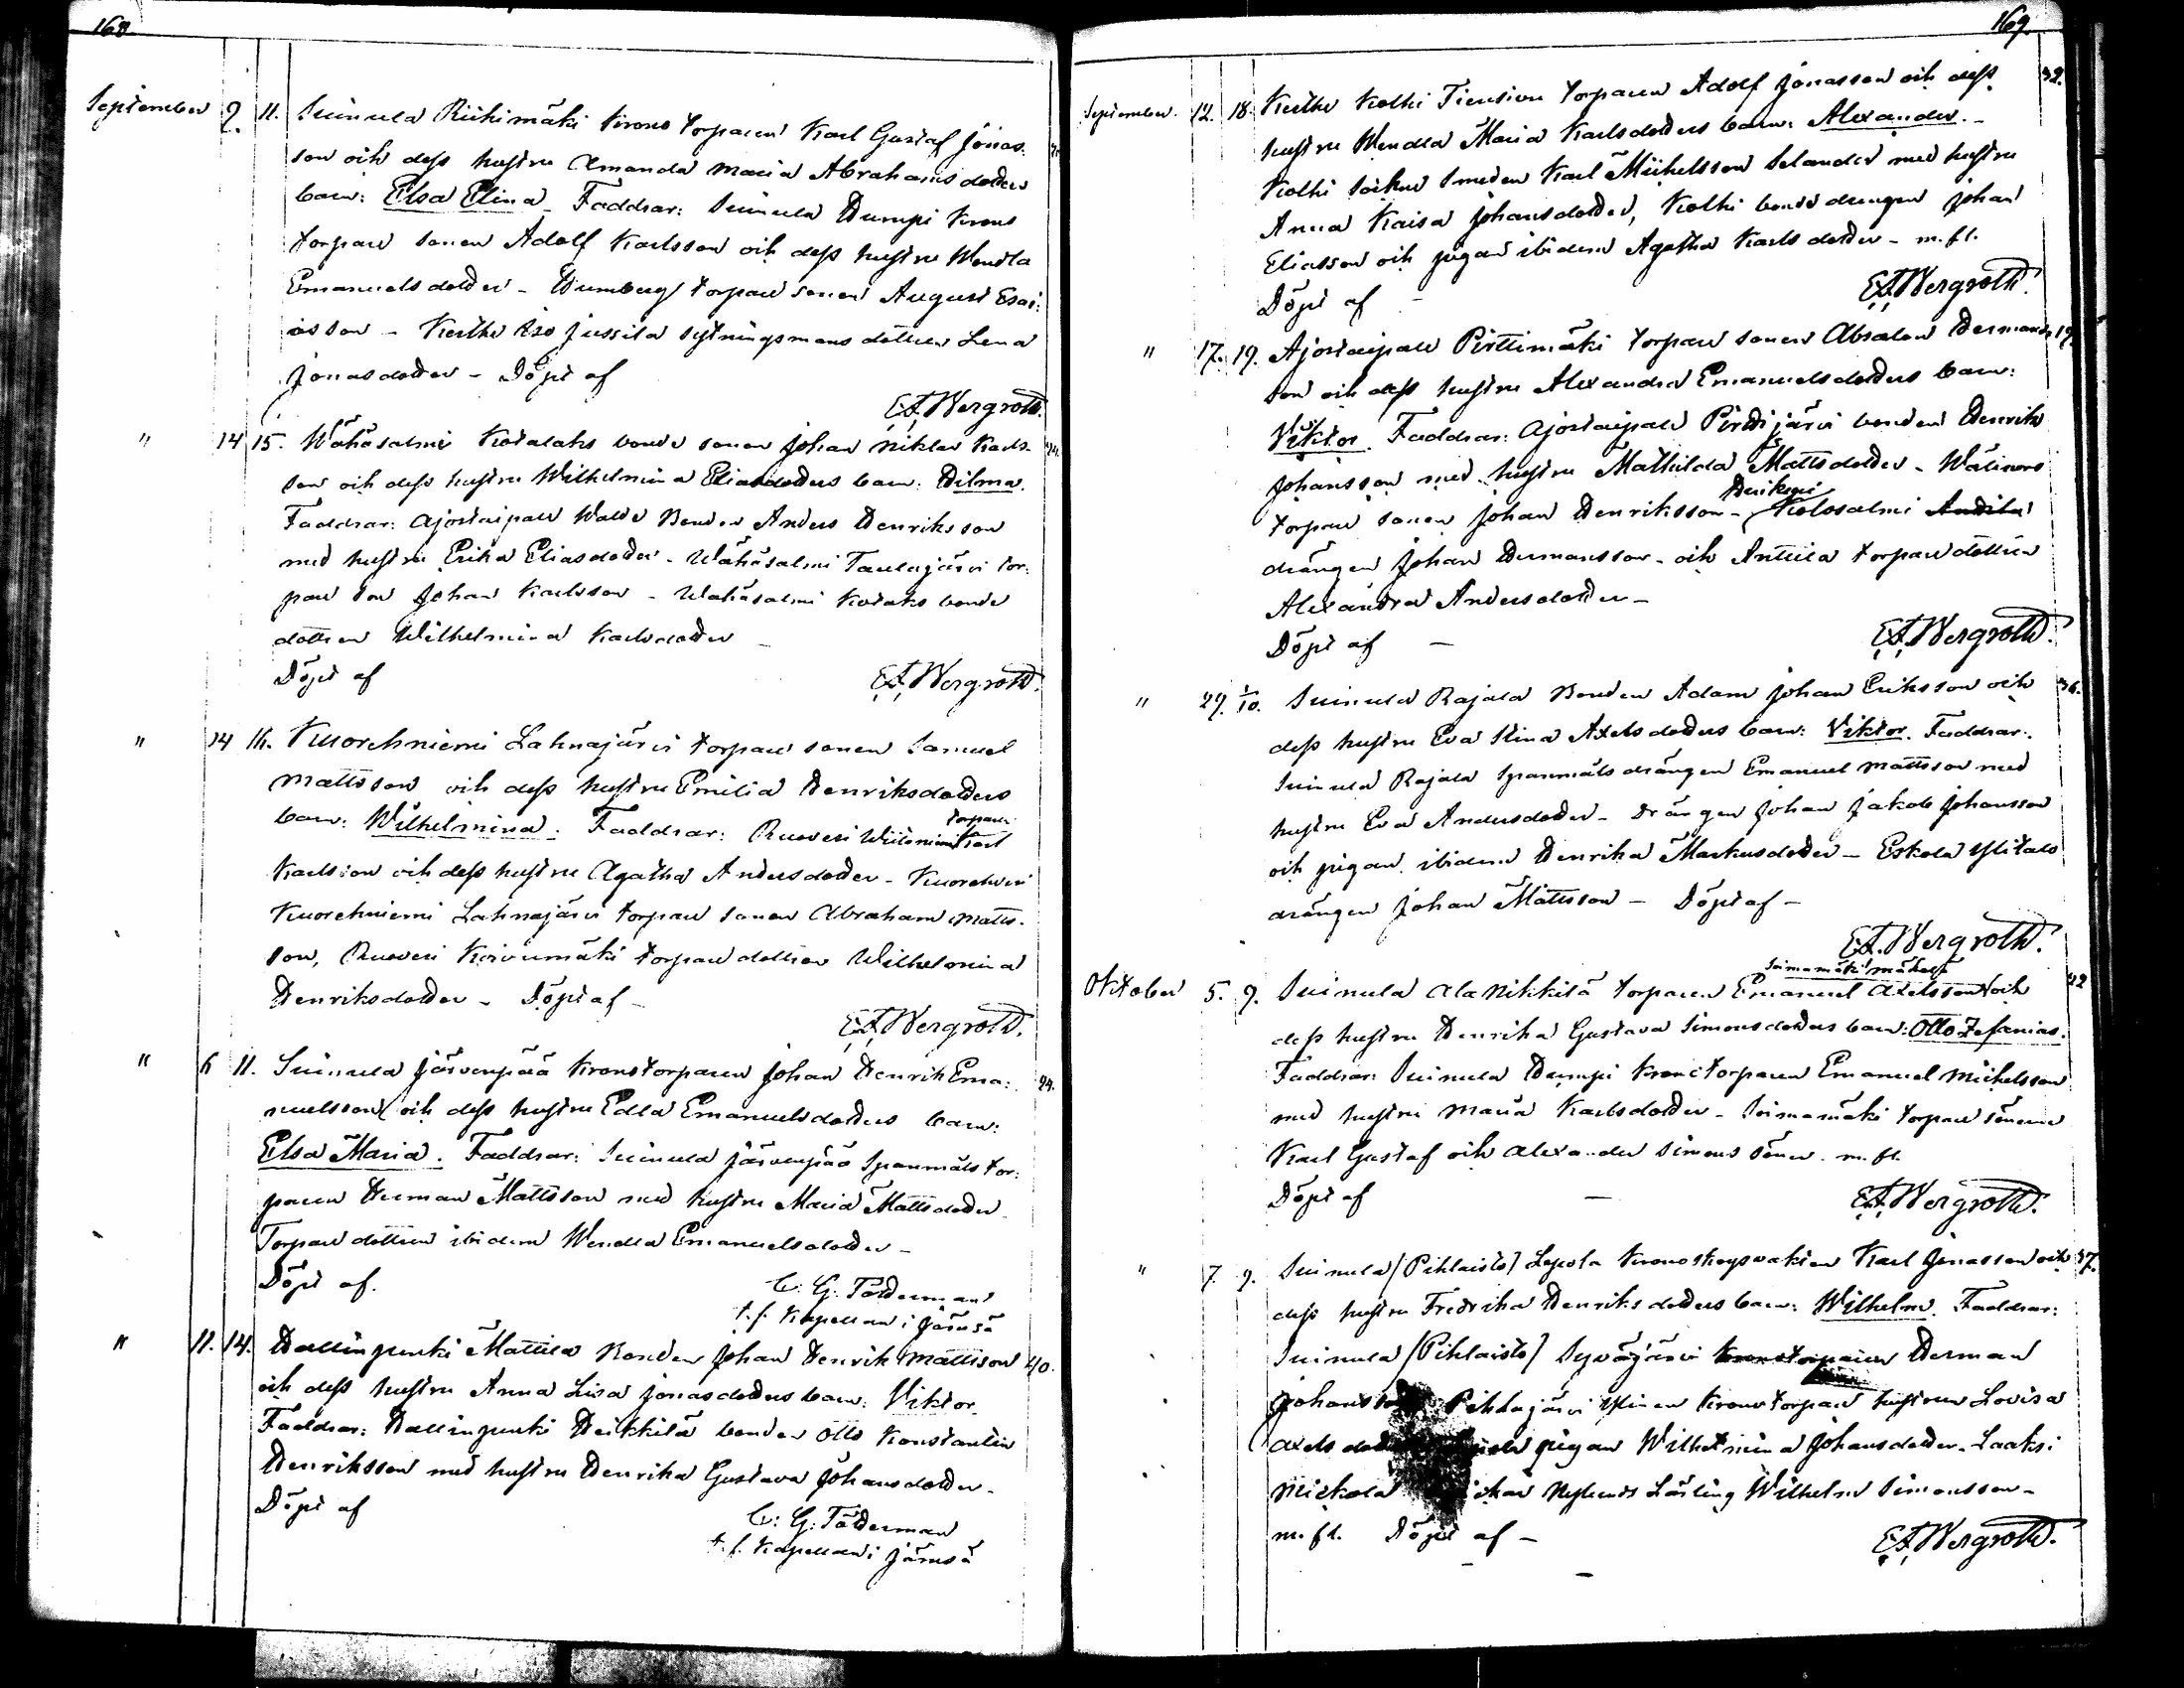 168.
September 9. 11. Suinula Riihimäki krono torparen Karl Gustaf Jonas-
son och dess hustru Amanda Maria Abrahamsdotters
barn: Elsa Elina. Faddrar: Suinula Humpi krono
torpare sonen Adolf Karlsson och dess hustru Wendla
Emanuelsdotter - Humberg torpare sonen August Esai-
asson - Keuthu Iso Jussila sytningsmans dottren Lena
Jonasdotter - Döpt af
E.A. Wergroth.
" 14 15. Wähäsalmi Kotalaks bonde sonen Johan Niklas Karls-
son och dess hustru Wilhelmina Eliasdotters barn: Hilma.
Faddrar: Ajostaipale Bonden Anders Henriksson
med hustru Erika Eliasdotter - Wähäsalmi Taulajärvi tor-
pare son Johan Karlsson - Wähäsalmi bonde
dottren Wilhelmina Karlsdotter
Döpt af
E.A. Wergroth.
" 14 16. Kuorehniemi Lahnajärvi torpare sonen Samuel
Mattsson och dess hustru Emilia Henriksdotters
torparen
barn: Wilhelmina. Faddrar: Ruoveri
Karlsson och dess hustru Agatha Andersdotter -
Kuorehniemi Lahnajärvi torpare sonen Abraham Matts-
son, Ruoveri Koivumäki torpare dottren Wilhelmina
Henriksdotter - Döpt af -
E.A. Wergroth.
" 6 11. Suinula Järvenpää Kronotorparen Johan Henrik Ema- 24.
nuelsson och dess hustru Edla Emanuelsdotters barn:
Elsa Maria. Faddrar: Suinula Järvenpää Spanmåls tor-
paren Herman Mattsson med hustru Maria Mattsdotter
Torpare dottren ibidem Wendla Emanuelsdotter -
Döpt af.
C: G: Tötterman
t. f. Kapellan i Jämsä
" 11. 14. Hallinpenki Mattila Bonden Johan Henrik Mattsson 40.
och dess hustru Anna Lisa Jonasdotters barn: Viktor.
Faddrar: Hallinpenki Heikkilä bonden Otto Konstantin
Henriksson med hustru Henrika Gustava Johansdotter -
Döpt af
C: G: Tötterman
t. f. Kapellan i Jämsä
169.
September. 12. 18. Keuthu Kolhi torparen Adolf Jonasson och dess 32.
hustru Wendla Maria Karlsdotters barn: Alexander. -
Kolhi socken smeden Karl Mickelsson Selander med hustru
Anna Kaisa Johansdotter, Kolhi bonde drängen Johan
Eliasson och pigan ibidem Agatha Karlsdotter - m. fl.
Döpt af -
E.A. Wergroth.
" 17. 19. Ajostaipale Pirttimäki torpare sonen Absalon Hermans- 19.
son och dess hustru Alexandra Emanuelsdotters barn:
Viktor. Faddrar: Ajostaipale Pirttijärvi bonden Henrik
Johansson med hustru Mathilda Mattsdotter -
torpare sonen Johan Henriksson - Kolosalmi Anttila
drängen Johan Hermansson - och Anttila torpare dottren
Alexandra Andersdotter -
Döpt af -
E.A. Wergroth.
" 29. 1/10. Suinula Rajala Bonden Adam Johan Eriksson och 36.
dess hustru Eva Stina Axelsdotters barn: Viktor. Faddrar:
Suinula Rajala Spanmåls drängen Emanuel Mattsson med
hustru Eva Andersdotter - drängen Johan Jakob Johansson
och pigan ibidem Henrika Markusdotter - Eskola Ylitalo
drängen Johan Mattsson - Döpt af -
E.A. Wergroth.
Soimamäki mäkelä
Oktober 5. 9. Suinula Ala Nikkilä torparen Emanuel Axelsson och 22
dess hustru Henrika Gustava Simonsdotters barn: Otto Zefanias.
Faddrar: Suinula Humpi Kronotorparen Emanuel Mickelsson
med hustru Maria Karlsdotter - Soimamäki torpare sönerne
Karl Gustaf och Alexander Simons söner. m. fl.
Döpt af -
E.A. Wergroth.
" 7. 9. Suinula [Pihlaisto] Lepola Kronoskogvakten Karl Jonasson och 37.
dess hustru Fredrika Henriksdotters barn: Wilhelm. Faddrar:
Suinula [Pihlaisto] Syväjärvi kronotorparen Herman
Johansson Pihlajärvi Ylinen Kronotorpare hustrun Lovisa
Axels pigan Wilhelmina Johansdotter. Laaksi
Mickola Lärling Wilhelm Simonsson -
m. fl. Döpt af -
E.A. Wergroth.